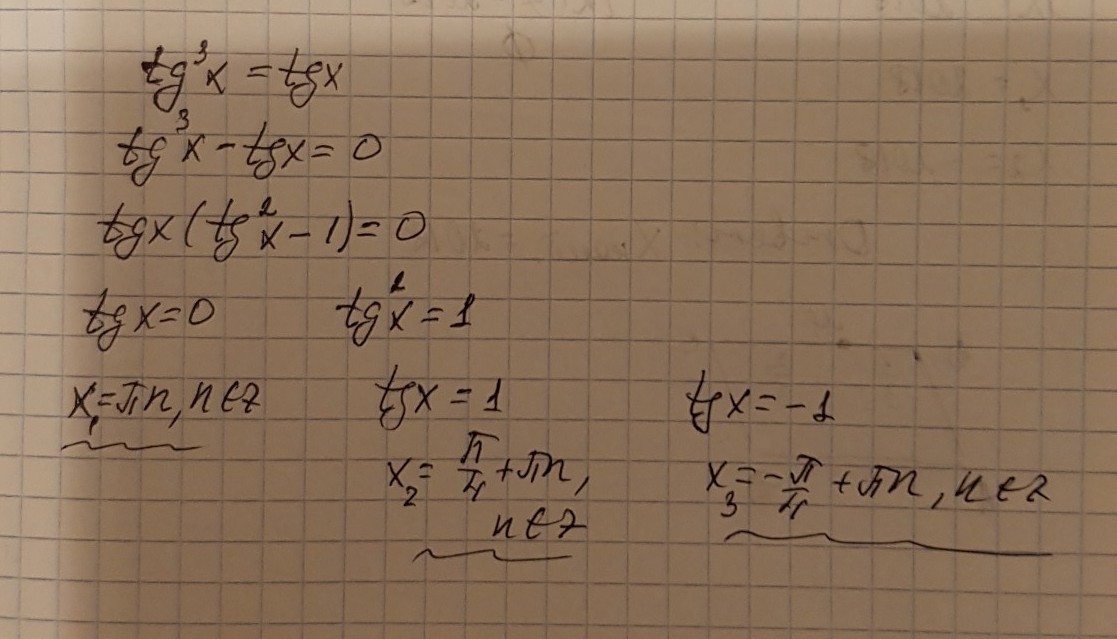 tg³x = tgx
tg³x - tgx = 0
tgx (tg²x - 1) = 0
tgx = 0 tg²x = 1
x₁ = πn, n ∈ z tgx = 1 tgx = -1
x₂ = π/4 + πn, x₃ = -π/4 + πn, n ∈ z
n ∈ z